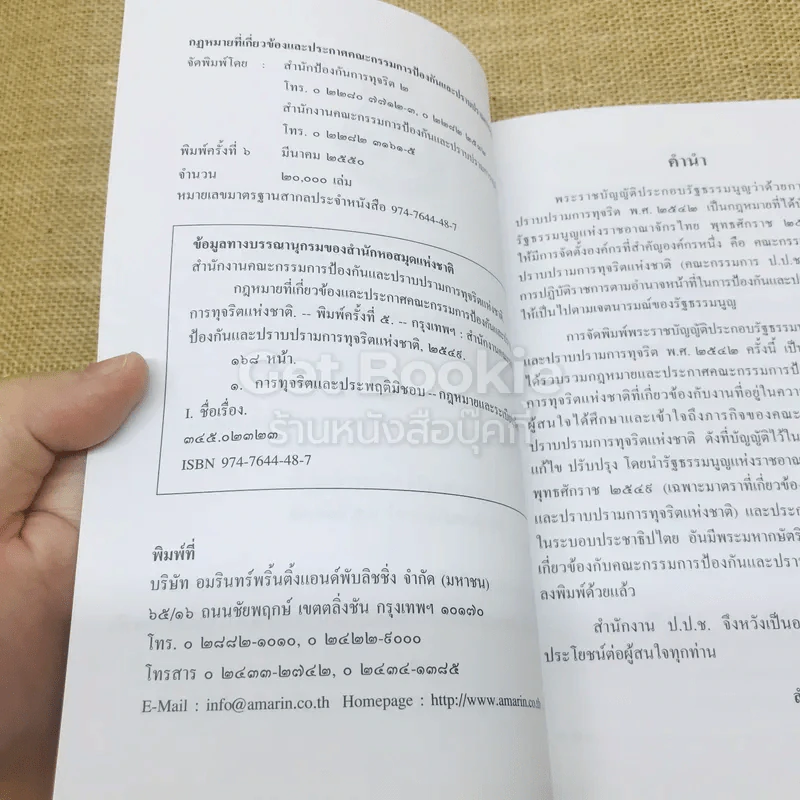 กฎหมายที่เกี่ยวข้องและประกาศคณะกรรมการป้องกันและปราบปราม
จัดพิมพ์โดย : สำนักป้องกันการทุจริต ๒
โทร. ๐ ๒๒๘๐ ๗๗๑๒-๓, ๐ ๒๒๘๒
สำนักงานคณะกรรมการป้องกันและปราบปราม
โทร. ๐ ๒๒๘๒ ๓๑๖๑-๕
พิมพ์ครั้งที่ ๖ มีนาคม ๒๕๕๐
จำนวน ๒๐,๐๐๐ เล่ม
หมายเลขมาตรฐานสากลประจำหนังสือ 974-7644-48-7
ข้อมูลทางบรรณานุกรมของสำนักหอสมุดแห่งชาติ
สำนักงานคณะกรรมการป้องกันและปราบปรามการทุจริตแห่งชาติ
กฎหมายที่เกี่ยวข้องและประกาศคณะกรรมการป้องกันและ
การทุจริตแห่งชาติ. -- พิมพ์ครั้งที่ ๕. -- กรุงเทพฯ : สำนักงาน
ป้องกันและปราบปรามการทุจริตแห่งชาติ, ๒๕๔๙.
๑๖๘ หน้า.
๑. การทุจริตและประพฤติมิชอบ -- กฎหมายและระเบียบ
I. ชื่อเรื่อง.
๓๔๕.๐๒๓๒๓
ISBN 974-7644-48-7
พิมพ์ที่
บริษัท อมรินทร์พริ้นติ้งแอนด์พับลิชชิ่ง จำกัด (มหาชน)
๖๕/๑๖ ถนนชัยพฤกษ์ เขตตลิ่งชัน กรุงเทพฯ ๑๐๑๗๐
โทร. ๐ ๒๘๘๒-๑๐๑๐, ๐ ๒๔๒๒-๙๐๐๐
โทรสาร ๐ ๒๔๓๓-๒๗๔๒, ๐ ๒๔๓๔-๑๓๘๕
E-Mail : info@amarin.co.th Homepage : http://www.amarin.co.th
คำนำ
พระราชบัญญัติประกอบรัฐธรรมนูญว่าด้วยการ
ปราบปรามการทุจริต พ.ศ. ๒๕๔๒ เป็นกฎหมายที่ได้
รัฐธรรมนูญแห่งราชอาณาจักรไทย พุทธศักราช
ให้มีการจัดตั้งองค์กรที่สำคัญองค์กรหนึ่ง คือ คณะกรรม
ปราบปรามการทุจริตแห่งชาติ (คณะกรรมการ ป.ป.ช.
การปฏิบัติราชการตามอำนาจหน้าที่ในการป้องกันและป
ให้เป็นไปตามเจตนารมณ์ของรัฐธรรมนูญ
การจัดพิมพ์พระราชบัญญัติประกอบรัฐธรรม
และปราบปรามการทุจริต พ.ศ. ๒๕๔๒ ครั้งนี้ เป็น
ได้รวบรวมกฎหมายและประกาศคณะกรรมการ
การทุจริตแห่งชาติที่เกี่ยวข้องกับงานที่อยู่ในความ
ผู้สนใจได้ศึกษาและเข้าใจถึงภารกิจของคณะ
ปราบปรามการทุจริตแห่งชาติ ดังที่บัญญัติไว้ใน
แก้ไข ปรับปรุง โดยนำรัฐธรรมนูญแห่งราชอาณ
พุทธศักราช ๒๕๔๙ (เฉพาะมาตราที่เกี่ยวข้อง
และปราบปรามการทุจริตแห่งชาติ) และประก
ในระบอบประชาธิปไตย อันมีพระมหากษัตริ
เกี่ยวข้องกับคณะกรรมการป้องกันและปราบ
ลงพิมพ์ด้วยแล้ว
สำนักงาน ป.ป.ช. จึงหวังเป็นอ
ประโยชน์ต่อผู้สนใจทุกท่าน
Got Bookie
ร้านหนังสือบุ๊คกี้